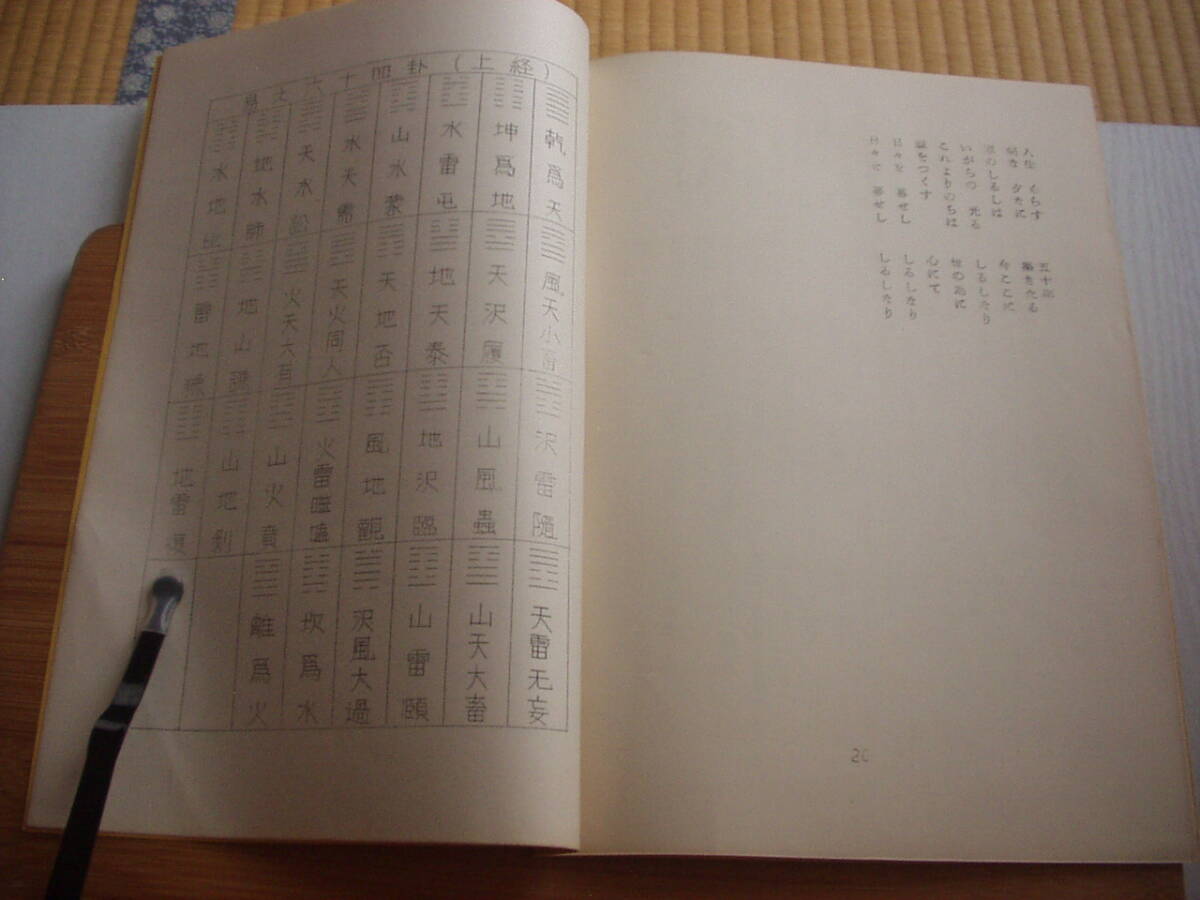 易之六十四卦(上経)
乾爲天
坤爲地
水雷屯
山水蒙
水天需
天水訟
地水師
水地比
風天小畜
天沢履
地天泰
天地否
天火同人
火天大有
地山謙
雷地豫
沢雷隨
山風蟲
地沢臨
風地觀
火雷噬嗑
山火賁
山地剝
地雷復
天雷无妄
山天大畜
山雷頤
沢風大過
坎爲水
離爲火
人生 くらす 五十年
夕なに 築きたる
のしるしは 今ここに
いがちの 光る しるしなり
これよりのちは 世の為に
をつくす 心にて
日々を 暮せし しるしなり
日々を 暮せし しるしなり
20